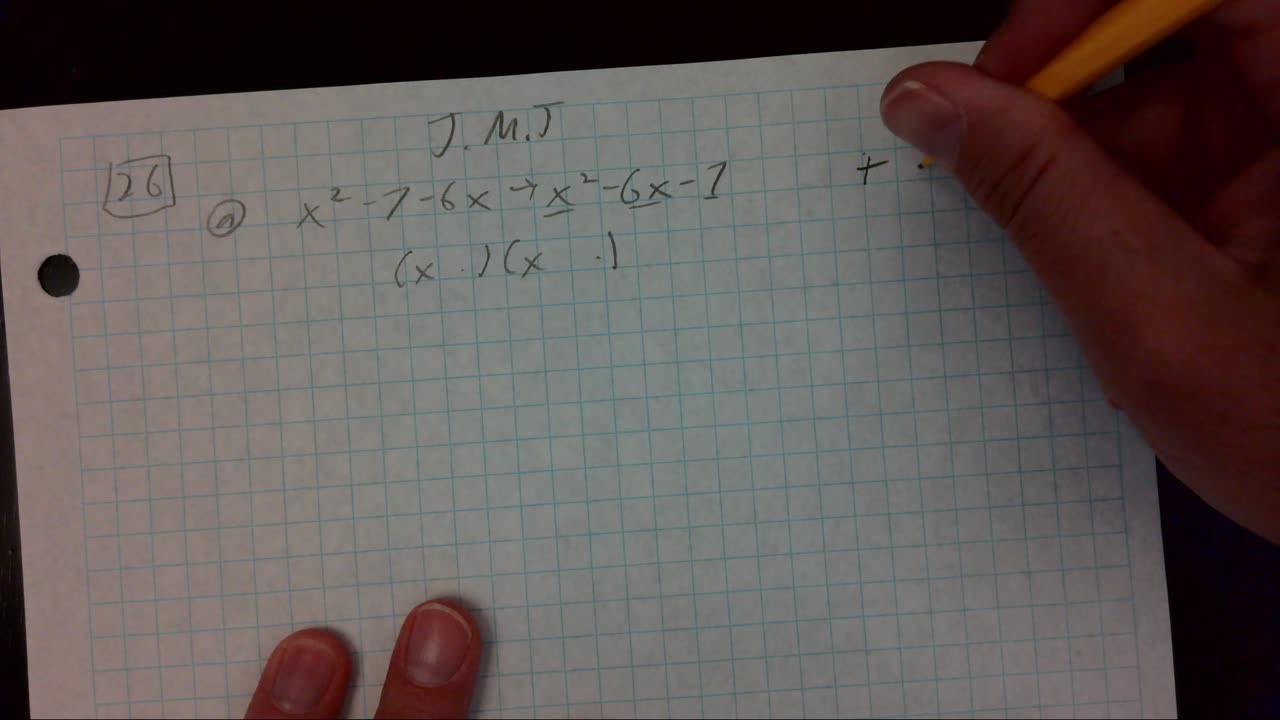 J.M.J
26
a x² - 7 - 6x → x² - 6x - 7
(x )(x )
+ ·